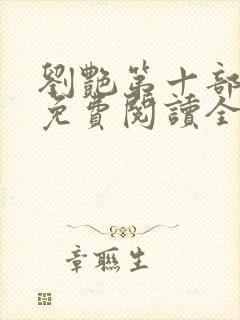 劉艷第十部
免費閱讀全
章聯生